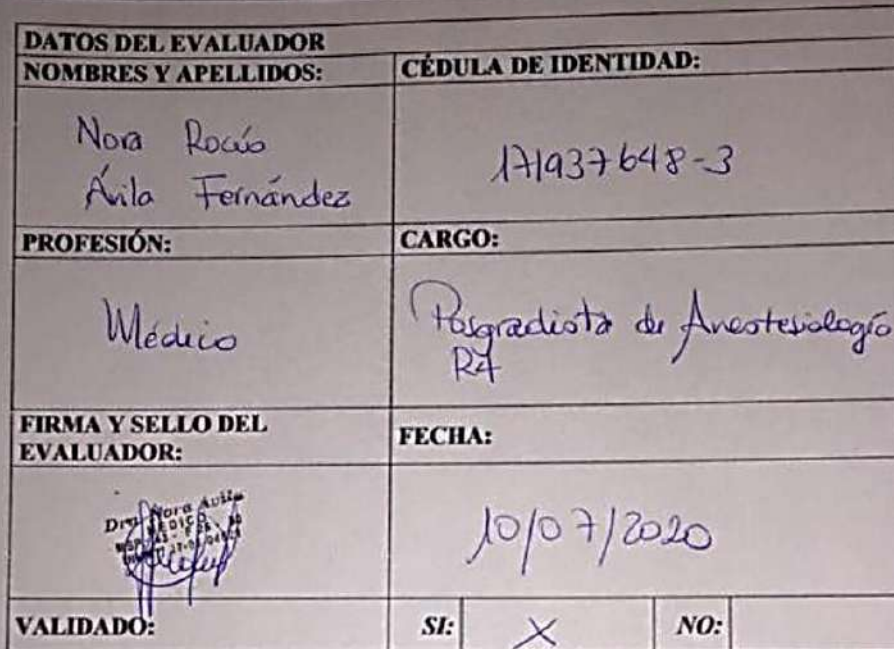 DATOS DEL EVALUADOR
NOMBRES Y APELLIDOS:
CÉDULA DE IDENTIDAD:
Nora Rocío
Ávila Fernández
171937648-3
PROFESIÓN:
CARGO:
Médico
Posgradista de Anestesiología
R4
FIRMA Y SELLO DEL
EVALUADOR:
FECHA:
Dra. Nora Avila
MEDICO
10/07/2020
VALIDADO:
SI:
X
NO: